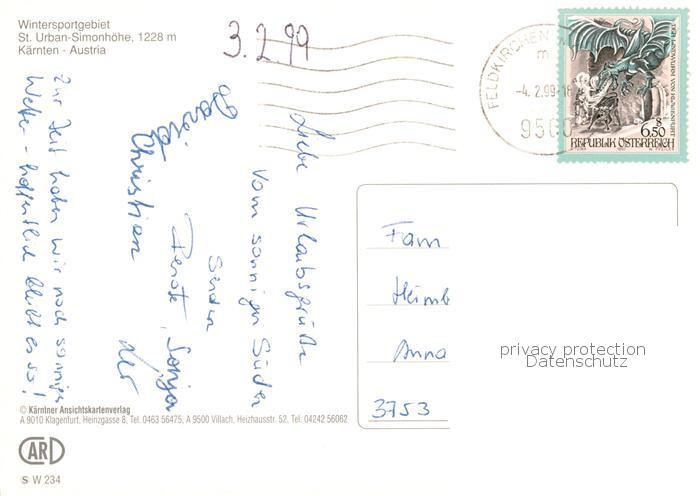 Wintersportgebiet
St. Urban-Simonhöhe, 1228 m
Kärnten - Austria
3.2.99
FELDKIRCHEN
-4.2.99-18
9560
DER LINDWURM VON KLAGENFURT
S
6.50
REPUBLIK ÖSTERREICH
1997
Liebe Urlaubsgrüße
vom sonnigen Süden
senden
Renate, Sonja
Christian
Zur Zeit haben wir noch sonniges
Wetter - hoffentlich bleibt es so!
Fam
Anna
3753
privacy protection
Datenschutz
© Kärntner Ansichtskartenverlag
A 9010 Klagenfurt, Heinzgasse 8, Tel. 0463 56475, A 9500 Villach, Heizhausstr. 52, Tel. 04242 56062
CARD
S W 234